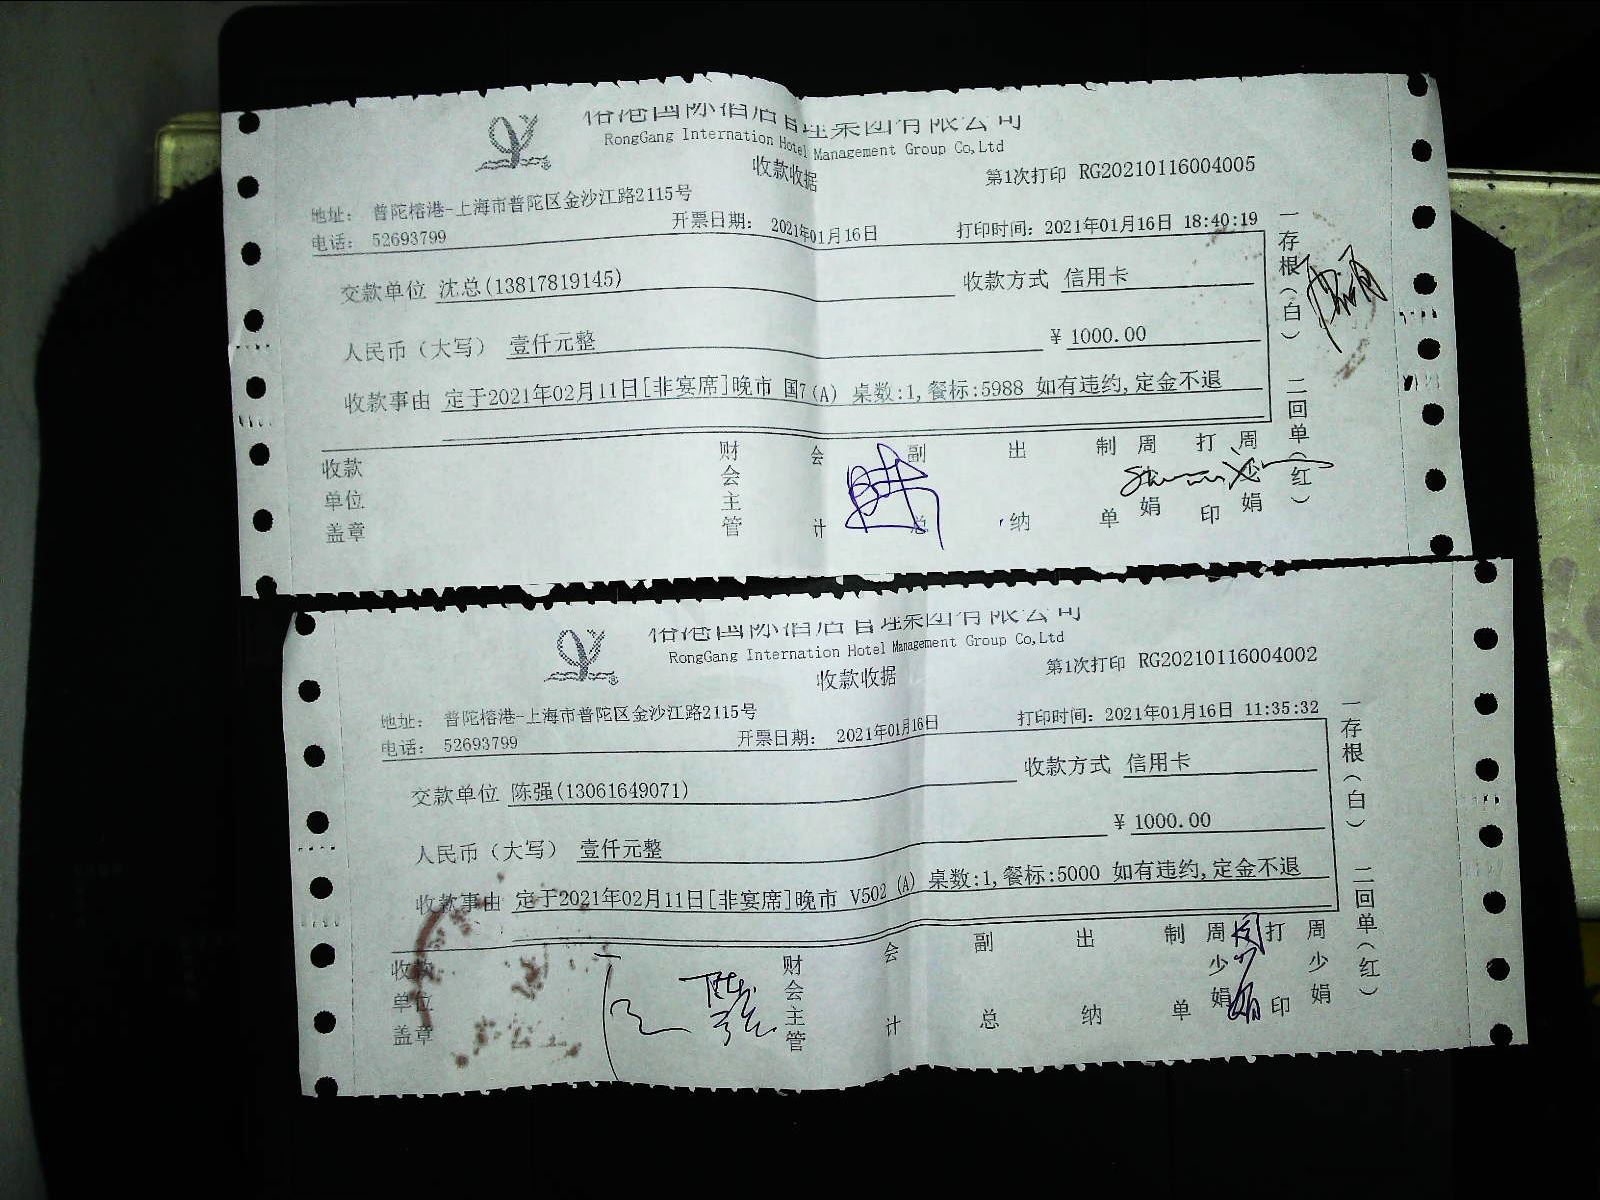 榕港国际酒店管理集团有限公司
RongGang Internation Hotel Management Group Co,Ltd
收款收据
第1次打印 RG20210116004005
地址： 普陀榕港-上海市普陀区金沙江路2115号
电话： 52693799
开票日期： 2021年01月16日
打印时间：2021年01月16日 18:40:19
交款单位 沈总(13817819145)
收款方式 信用卡
人民币（大写） 壹仟元整
￥ 1000.00
收款事由 定于2021年02月11日[非宴席]晚市 国7(A) 桌数:1,餐标:5988 如有违约,定金不退
收款单位盖章
财会主管
会计
副总
出纳
制单
周少娟
打印
周少娟
一存根（白） 二回单（红）
榕港国际酒店管理集团有限公司
RongGang Internation Hotel Management Group Co,Ltd
收款收据
第1次打印 RG20210116004002
地址： 普陀榕港-上海市普陀区金沙江路2115号
电话： 52693799
开票日期： 2021年01月16日
打印时间：2021年01月16日 11:35:32
交款单位 陈强(13061649071)
收款方式 信用卡
人民币（大写） 壹仟元整
￥ 1000.00
收款事由 定于2021年02月11日[非宴席]晚市 V502 (A) 桌数:1,餐标:5000 如有违约,定金不退
收款单位盖章
财会主管
会计
副总
出纳
制单
周少娟
打印
周少娟
一存根（白） 二回单（红）